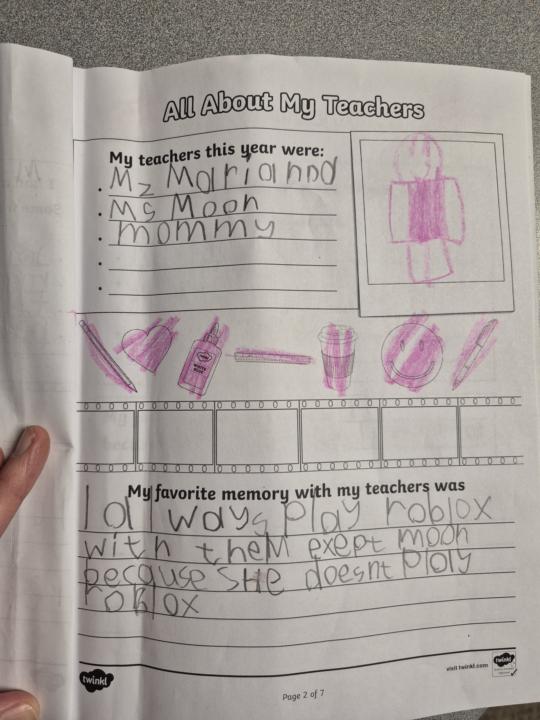 All About My Teachers
My teachers this year were:
Mz Marianna
Ms Moon
mommy
WHITE GLUE
My favorite memory with my teachers was
I always play roblox
with them exept moon
because sHe doesnt ploly
roblox
twinkl
visit twinkl.com
twinkl
Page 2 of 7